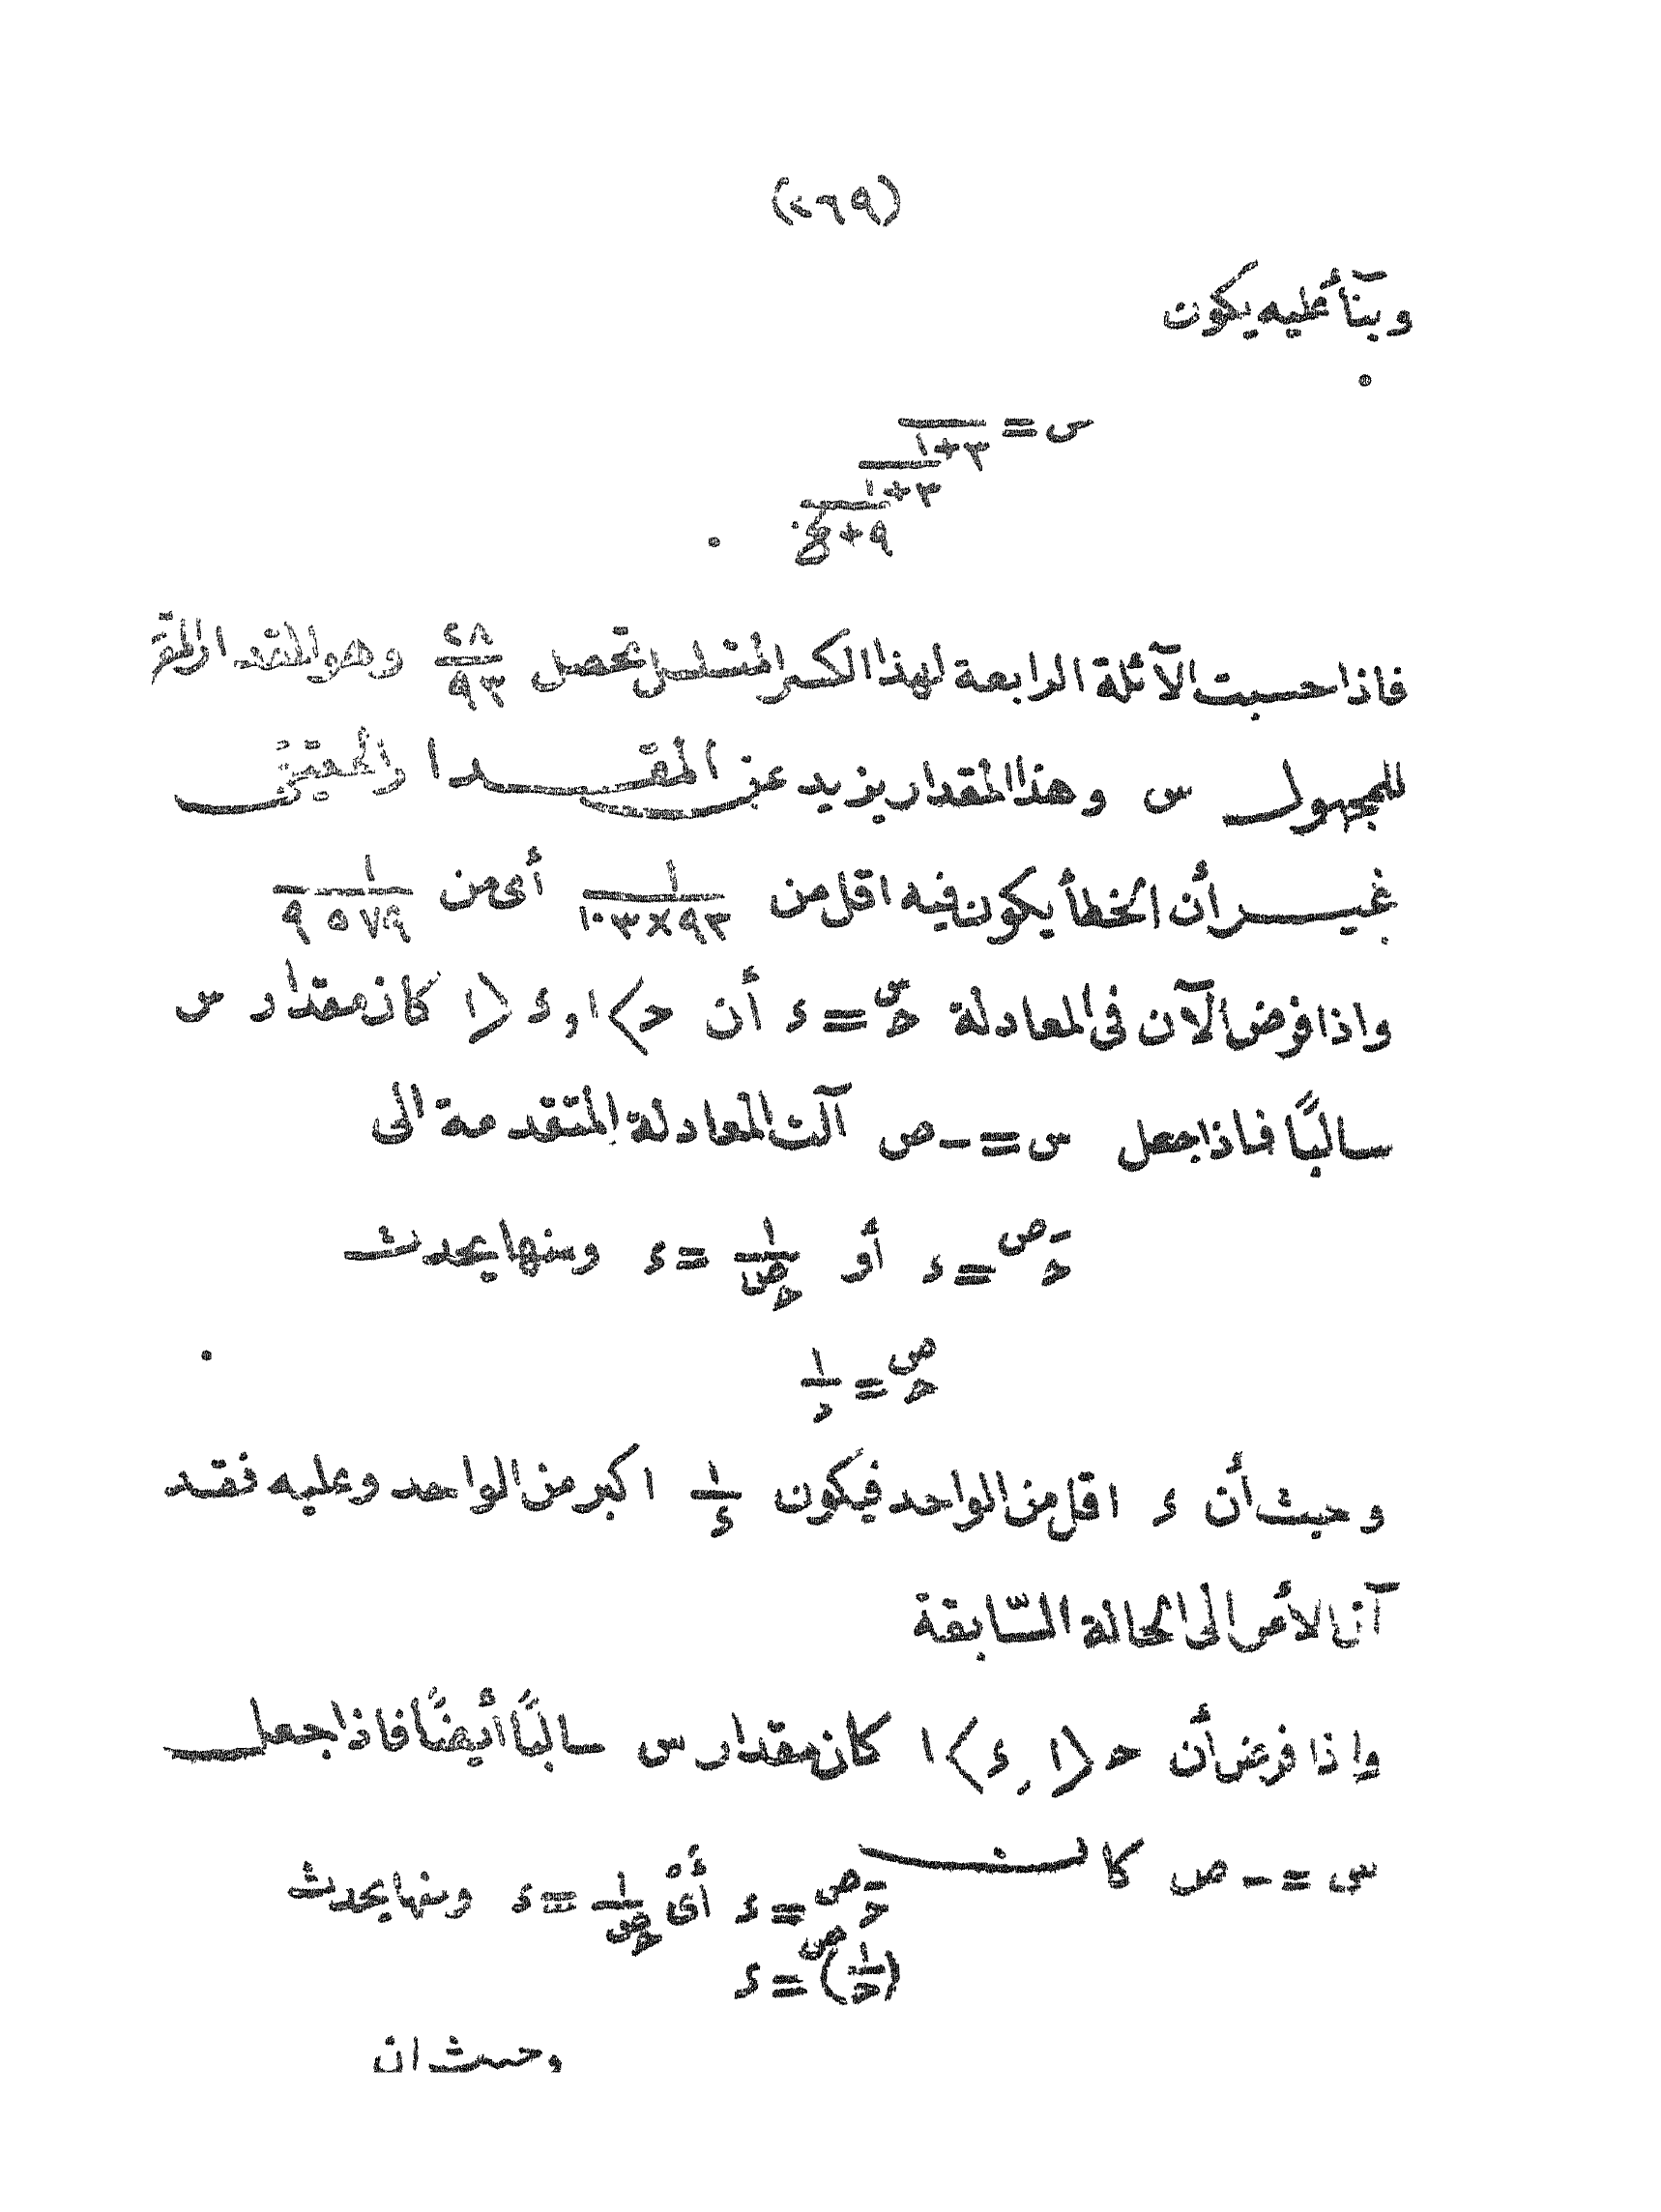 (٢٦٩)
وبنآءً عليه يكون
س = ١/(٣+١/(٣+١/(٩+ع
فاذا حسبت الآئلة الرابعة لهذا الكسر المتسلسل تحصل ٢٨/٩٣ وهو المقدار المقر
للمجهول س وهذا المقدار يزيد عن المقدار الحقيقى
غير أن الخطأ يكون فيه اقل من ١/(١٠٣×٩٣) أى من ١/٩٥٧٩
واذا فرض الآن فى المعادلة حـ^س = ء أن حـ > ١ , ء < ١ كان مقدار س
سالبًا فاذا جعل س = - ص آلت المعادلة المتقدمة الى
حـ^-ص = ء أو ١/حـ^ص = ء ومنها يحدث
حـ^ص = ١/ء
وحيث أن ء اقل من الواحد فيكون ١/ء اكبر من الواحد وعليه فقد
آن الأمر الى الحالة السّابقة
وإذا فرض أن حـ < ١ , ء > ١ كان مقدار س سالبًا أيضًا فاذا جعل
س = - ص كانت حـ^-ص = ء أىْ ١/حـ^ص = ء ومنها يحدث
(١/حـ)^ص = ء
وحيث ان